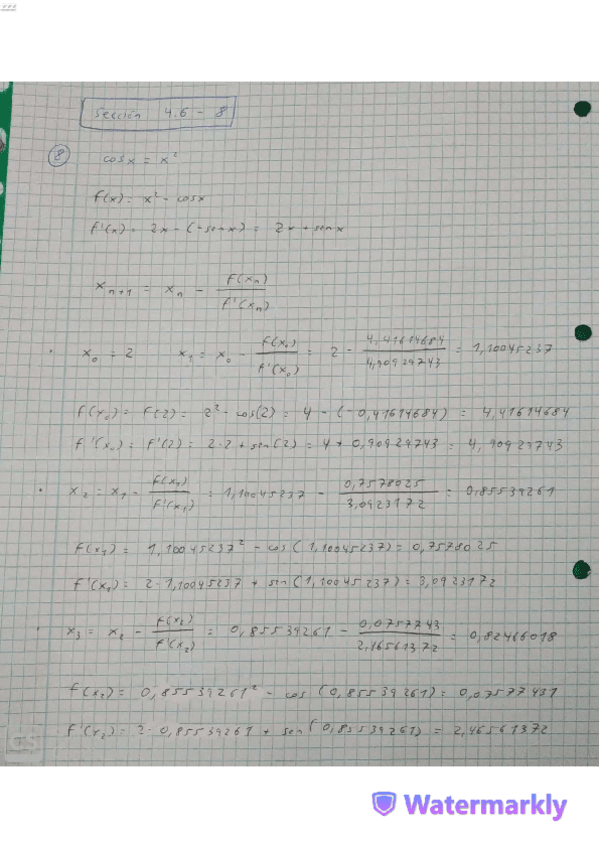 Sección 4.6 - 8
⑧ cosx = x²
f(x) = x² - cosx
f'(x) = 2x - (-senx) = 2x + senx
xₙ₊₁ = xₙ - f(xₙ)/f'(xₙ)
· x₀ = 2 x₁ = x₀ - f(x₀)/f'(x₀) = 2 - 4,41614684/4,90929743 = 1,10045237
f(x₀) = f(2) = 2² - cos(2) = 4 - (-0,41614684) = 4,41614684
f'(x₀) = f'(2) = 2·2 + sen(2) = 4 + 0,90929743 = 4,90929743
· x₂ = x₁ - f(x₁)/f'(x₁) = 1,10045237 - 0,7578025/3,0923172 = 0,85539261
f(x₁) = 1,10045237² - cos(1,10045237) = 0,7578025
f'(x₁) = 2·1,10045237 + sin(1,10045237) = 3,0923172
· x₃ = x₂ - f(x₂)/f'(x₂) = 0,85539261 - 0,0757743/2,46561372 = 0,82466018
f(x₂) = 0,85539261² - cos(0,85539261) = 0,07577431
f'(x₂) = 2·0,85539261 + sen(0,85539261) = 2,46561372
Watermarkly